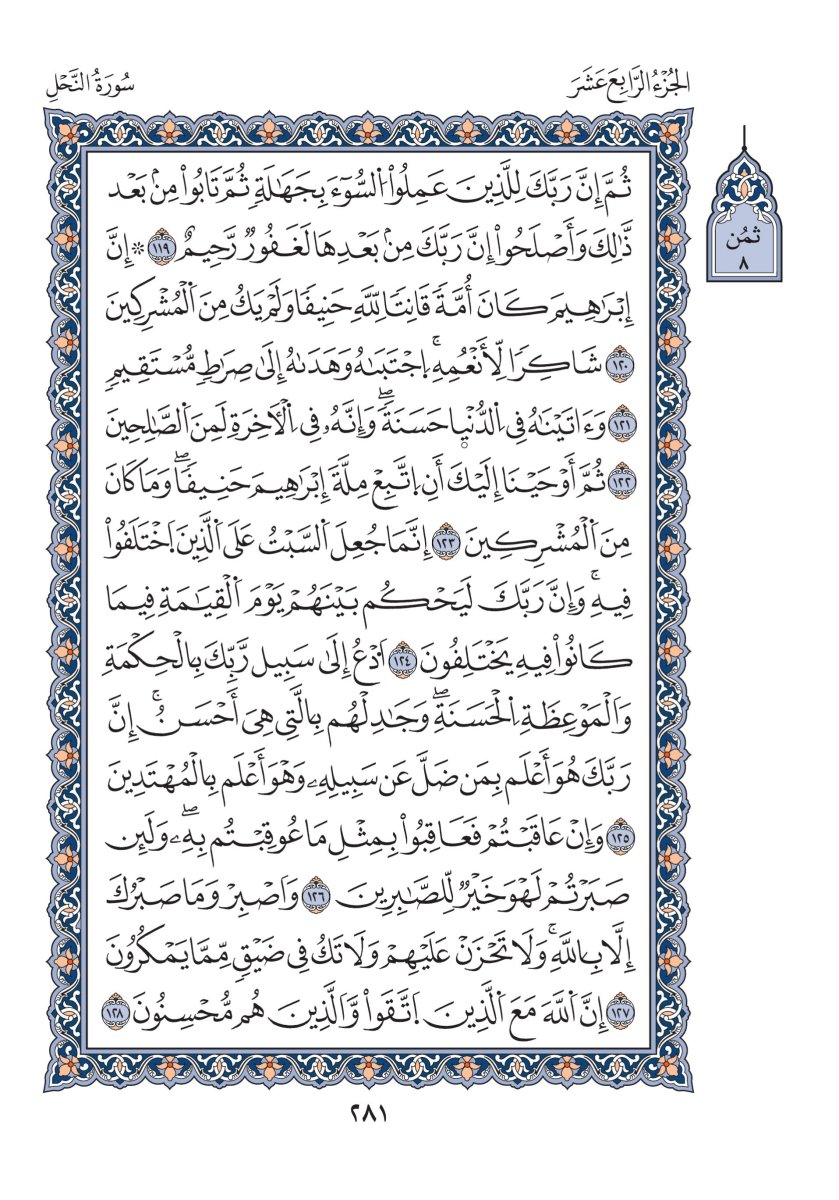 سُورَةُ النَّحۡلِ
الجُزۡءُ الرَّابِعَ عَشَرَ
ثُمَّ إِنَّ رَبَّكَ لِلَّذِينَ عَمِلُواْ اُ۬لسُّوٓءَ بِجَهَٰلَةٖ ثُمَّ تَابُواْ مِنۢ بَعۡدِ
ذَٰلِكَ وَأَصۡلَحُوٓاْ إِنَّ رَبَّكَ مِنۢ بَعۡدِهَا لَغَفُورٞ رَّحِيمٌ ١١٩ ۞ إِنَّ
إِبۡرَٰهِيمَ كَانَ أُمَّةٗ قَانِتٗا لِّلَّهِ حَنِيفٗا وَلَمۡ يَكُ مِنَ اَ۬لۡمُشۡرِكِينَ
١٢٠ شَاكِرٗا لِّأَنۡعُمِهِۚ اِ۪جۡتَبَىٰهُ وَهَدَىٰهُ إِلَىٰ صِرَٰطٖ مُّسۡتَقِيمٖ
١٢١ وَءَاتَيۡنَٰهُ فِي اِ۬لدُّنۡيٜا حَسَنَةٗۖ وَإِنَّهُۥ فِي اِ۬لۡأٓخِرَةِ لَمِنَ اَ۬لصَّٰلِحِينَ
١٢٢ ثُمَّ أَوۡحَيۡنَا إِلَيۡكَ أَنِ اِ۪تَّبِعۡ مِلَّةَ إِبۡرَٰهِيمَ حَنِيفٗاۖ وَمَا كَانَ
مِنَ اَ۬لۡمُشۡرِكِينَ ١٢٣ إِنَّمَا جُعِلَ اَ۬لسَّبۡتُ عَلَى اَ۬لَّذِينَ اَ۪خۡتَلَفُواْ
فِيهِۚ وَإِنَّ رَبَّكَ لَيَحۡكُم بَيۡنَهُمۡ يَوۡمَ اَ۬لۡقِيَٰمَةِ فِيمَا
كَانُواْ فِيهِ يَخۡتَلِفُونَ ١٢٤ اَ۟دۡعُ إِلَىٰ سَبِيل رَّبِّكَ بِالۡحِكۡمَةِ
وَالۡمَوۡعِظَةِ اِ۬لۡحَسَنَةِۖ وَجَٰدِلۡهُم بِالَّتِي هِيَ أَحۡسَنُۚ إِنَّ
رَبَّكَ هُوَ أَعۡلَم بِمَن ضَلَّ عَن سَبِيلِهِۦ وَهۡوَ أَعۡلَم بِالۡمُهۡتَدِينَ
١٢٥ وَإِنۡ عَاقَبۡتُمۡ فَعَاقِبُواْ بِمِثۡلِ مَا عُوقِبۡتُم بِهِۦۖ وَلَئِن
صَبَرۡتُمۡ لَهۡوَ خَيۡرٞ لِّلصَّٰبِرِينَ ١٢٦ وَاَصۡبِرۡ وَمَا صَبۡرُكَ
إِلَّا بِاللَّهِۚ وَلَا تَحۡزَنۡ عَلَيۡهِمۡ وَلَا تَكُ فِي ضَيۡقٖ مِّمَّا يَمۡكُرُونَ
١٢٧ إِنَّ اَ۬للَّهَ مَعَ اَ۬لَّذِينَ اَ۪تَّقَواْ وَّالَّذِينَ هُم مُّحۡسِنُونَ ١٢٨
ثُمُن
٨
٢٨١